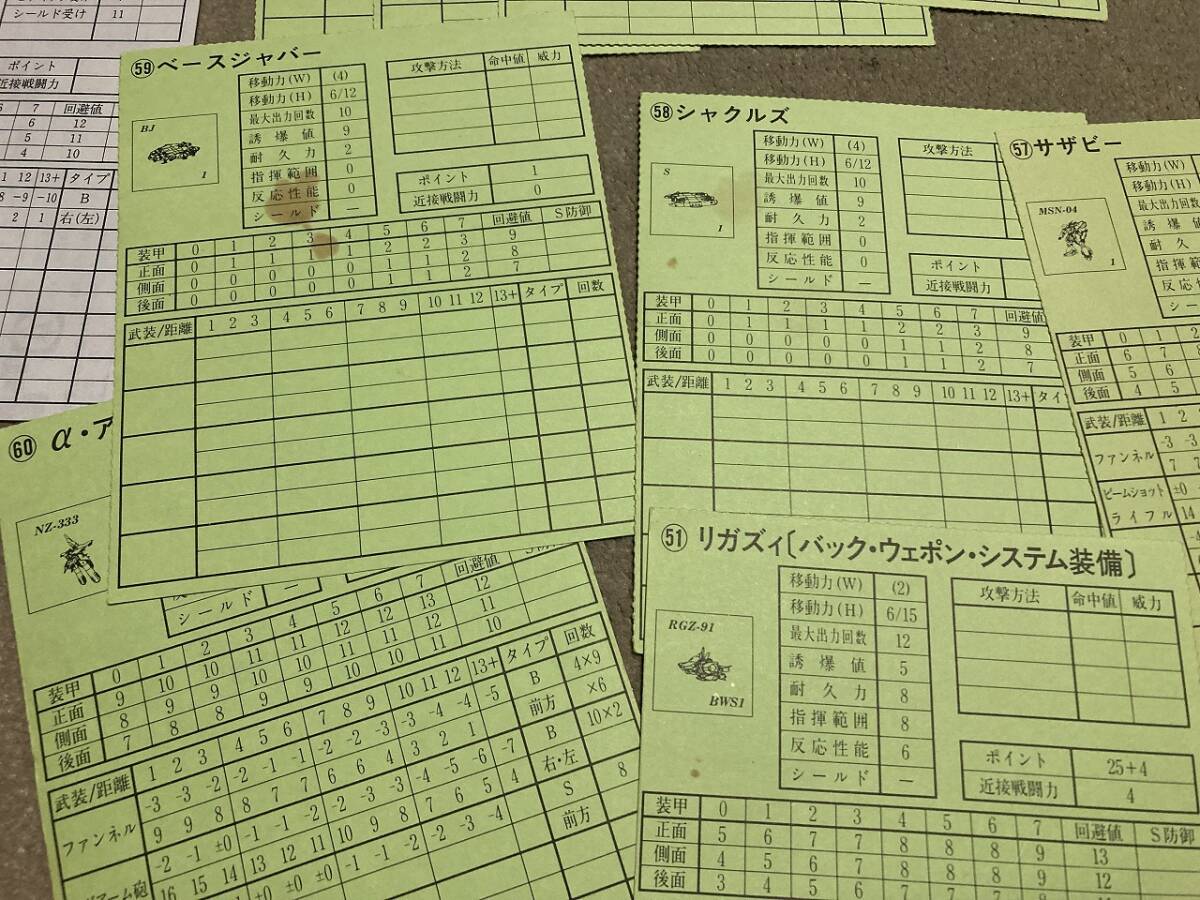 シールド受け 11
ポイント
近接戦闘力
6 7 回避値
6 12
5 11
4 10
11 12 13+ タイプ
-8 -9 -10 B
2 1 右(左)
59 ベースジャバー
BJ
1
移動力(W) (4)
移動力(H) 6/12
最大出力回数 10
誘爆値 9
耐久力 2
指揮範囲 0
反応性能 0
シールド —
攻撃方法 命中値 威力
ポイント 1
近接戦闘力 0
装甲 0 1 2 3 4 5 6 7 回避値 S防御
正面 0 1 1 1 1 2 2 3 9
側面 0 0 0 0 0 1 1 2 8
後面 0 0 0 0 0 1 1 2 7
武装/距離 1 2 3 4 5 6 7 8 9 10 11 12 13+ タイプ 回数
58 シャクルズ
S
1
移動力(W) (4)
移動力(H) 6/12
最大出力回数 10
誘爆値 9
耐久力 2
指揮範囲 0
反応性能 0
シールド —
攻撃方法
ポイント
近接戦闘力
装甲 0 1 2 3 4 5 6 7 回避値
正面 0 1 1 1 1 2 2 3 9
側面 0 0 0 0 0 1 1 2 8
後面 0 0 0 0 0 1 1 2 7
武装/距離 1 2 3 4 5 6 7 8 9 10 11 12 13+ タイ
57 サザビー
MSN-04
1
移動力(W)
移動力(H)
最大出力回数
誘爆値
耐久
指揮範囲
反応性
シール
装甲 0 1 2
正面 6 7 8
側面 5 6
後面 4 5
武装/距離 1 2
ファンネル -3 -3
7 7
ビームショット ±0
ライフル 14
60 α・ア
NZ-333
シールド —
装甲 0 1 2 3 4 5 6 7 回避値 S防御
正面 9 10 10 11 11 12 12 13 12
側面 8 9 9 10 10 11 11 12 11
後面 7 8 8 9 9 10 10 11 10
武装/距離 1 2 3 4 5 6 7 8 9 10 11 12 13+ タイプ 回数
ファンネル -3 -3 -2 -2 -1 -1 -1 -2 -2 -3 -3 -4 -4 -5 B 4×9
9 9 8 8 7 7 6 6 4 3 2 1 前方 ×6
-2 -1 ±0 -1 -1 -2 -2 -3 -3 -4 -5 -6 -7 B 10×2
16 15 14 13 12 11 10 9 8 7 6 5 4 右・左
±0 ±0 -1 -1 -2 -2 -3 -4 S 8
前方
51 リガズィ〔バック・ウェポン・システム装備〕
RGZ-91
BWS1
移動力(W) (2)
移動力(H) 6/15
最大出力回数 12
誘爆値 5
耐久力 8
指揮範囲 8
反応性能 6
シールド —
攻撃方法 命中値 威力
ポイント 25+4
近接戦闘力 4
装甲 0 1 2 3 4 5 6 7 回避値 S防御
正面 5 6 7 7 8 8 8 9 13
側面 4 5 6 7 8 8 8 9 12
後面 3 4 5 6 7 7